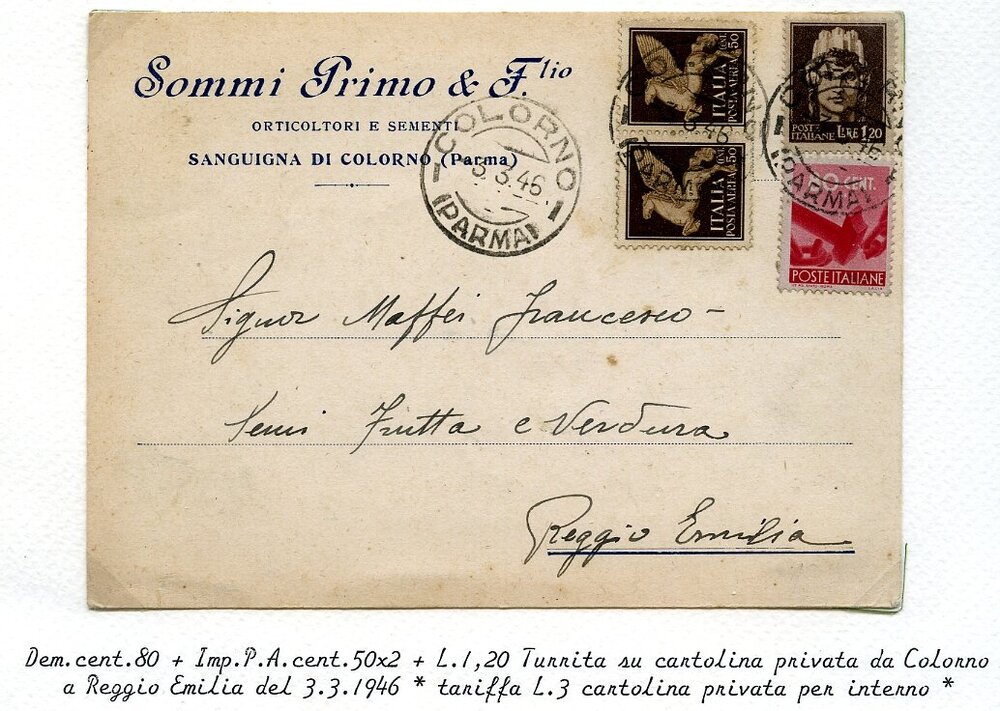 Sommi Primo & F.lio
ORTICOLTORI E SEMENTI
SANGUIGNA DI COLORNO (Parma)
COLORNO
3.3.46
(PARMA)
ITALIA
POSTA AEREA
CENT. 50
ITALIA
POSTA AEREA
CENT. 50
POSTE
ITALIANE
LIRE 1,20
CENT.
POSTE ITALIANE
3.46
PARMA
(PARMA)
Signor Maffei Francesco -
Semi Frutta e Verdura
Reggio Emilia
Dem.cent.80 + Imp.P.A.cent.50x2 + L.1,20 Turrita su cartolina privata da Colorno
a Reggio Emilia del 3.3.1946 * tariffa L.3 cartolina privata per interno *